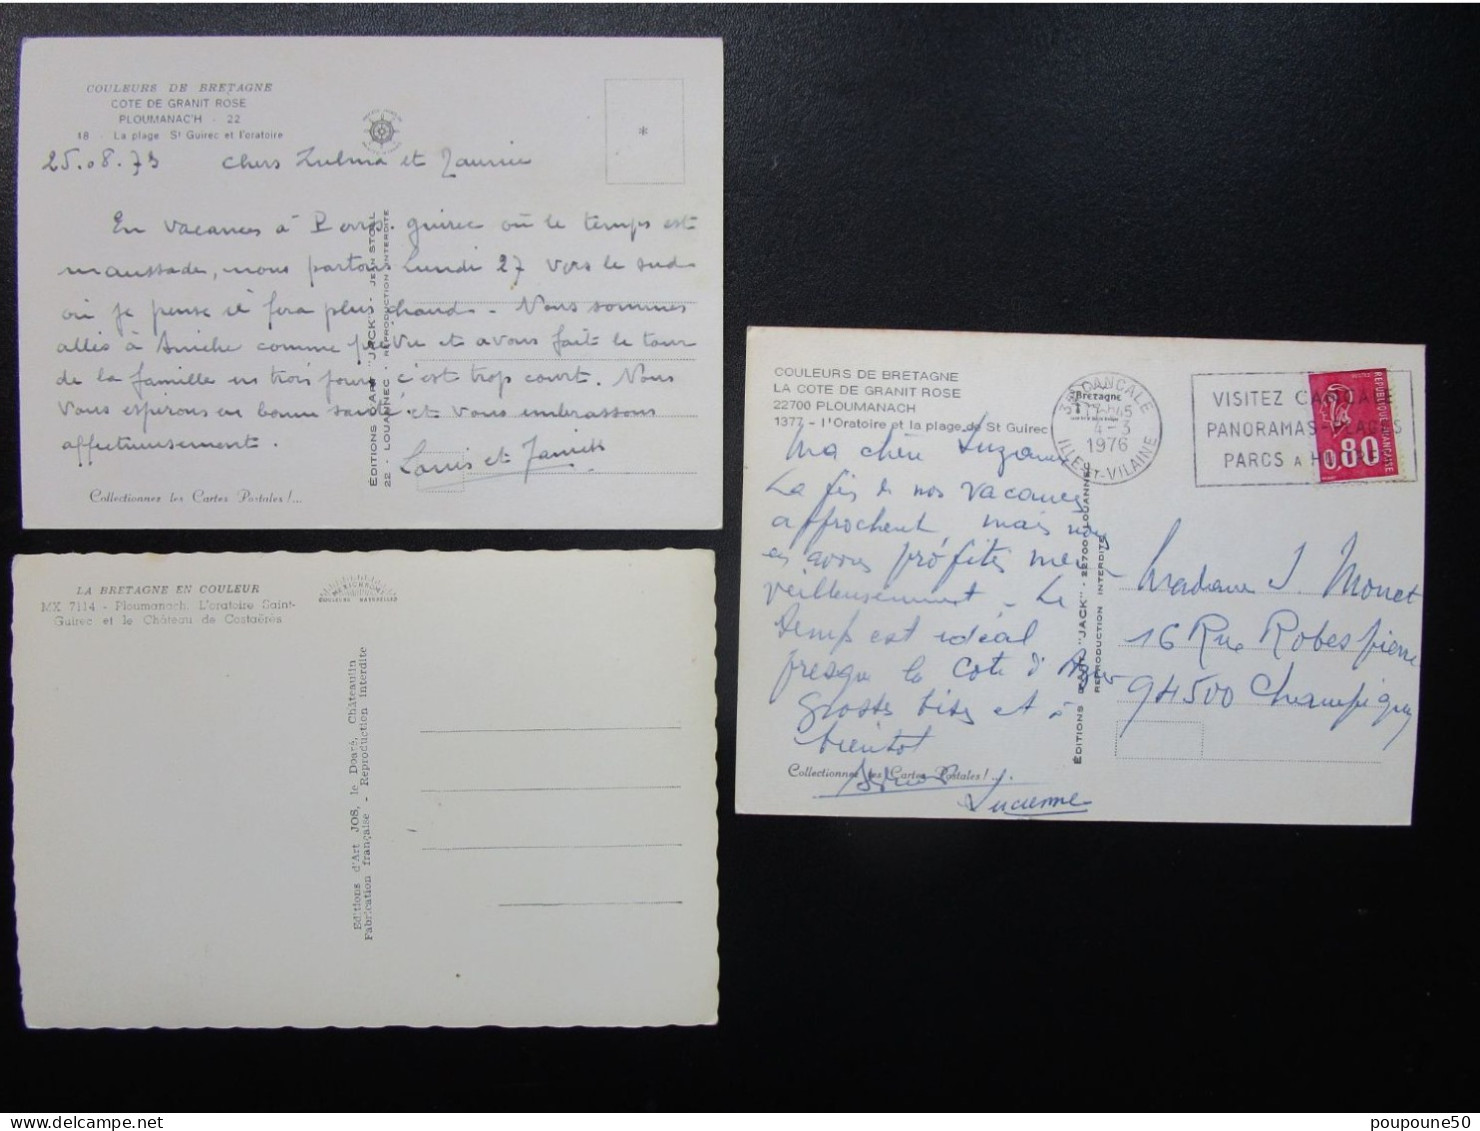 COULEURS DE BRETAGNE
COTE DE GRANIT ROSE
PLOUMANAC'H - 22
18 - La plage St Guirec et l'oratoire
25.08.73 chers Zulma et
En vacances à Perros. guirec où le temps est
maussade, nous partons Lundi 27 vers le sud
où je pense il fera plus chaud - Nous sommes
allés à Aniche comme prévu et avons fait le tour
de la famille en trois jours c'est trop court. Nous
vous espérons en bonne santé et vous embrassons
affectueusement.
Louis et
Collectionnez les Cartes Postales !...
ÉDITIONS D'ART "JACK" - JEAN STOLL
22 - LOUANNEC - REPRODUCTION INTERDITE
LA BRETAGNE EN COULEUR
MX 7114 - Ploumanach. L'oratoire Saint-
Guirec et le Château de Costaérès
MEXICHROME
COULEURS NATURELLES
Editions d'Art JOS, le Doaré, Châteaulin
Fabrication française - Reproduction interdite
COULEURS DE BRETAGNE
LA COTE DE GRANIT ROSE
22700 PLOUMANACH
1377 - l'Oratoire et la plage de St Guirec
Bretagne
35 CANCALE
4-3
1976
ILLE-ET-VILAINE
VISITEZ CANCALE
PANORAMAS-PLAGES
PARCS A HUITRES
REPUBLIQUE FRANCAISE
0,80
Ma chère Suzanne
La fin de nos vacances
approchent mais nous
en avons profités mer-
veilleusement - Le
temps est idéal
presque la cote d'Azur
grosses bises et à
bientot
Lucienne
Collectionnez les Cartes Postales !...
ÉDITIONS D'ART "JACK" - 22700 LOUANNEC
REPRODUCTION INTERDITE
Madame S. Monet
16 Rue Robespierre
94500 Champigny
poupoune50